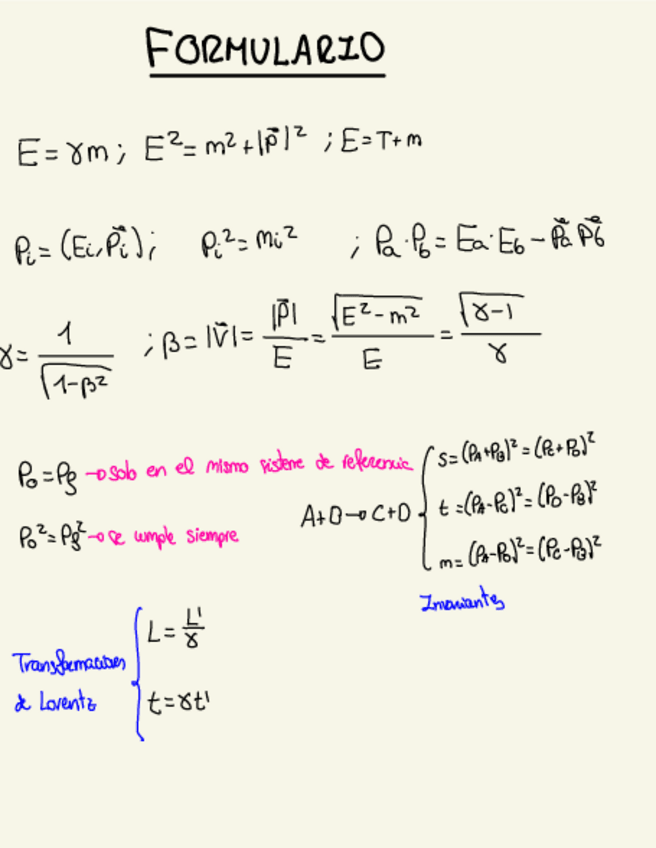 FORMULARIO
E = γm ; E² = m² + |p⃗|² ; E = T + m
Pᵢ = (Eᵢ, P⃗ᵢ) ; Pᵢ² = mᵢ² ; Pa · Pb = Ea · Eb − P⃗a P⃗b
γ = 1 / √(1−β²) ; β = |V⃗| = |P⃗| / E = √(E² − m²) / E = √(γ−1) / γ
P₀ = Pf → solo en el mismo sistema de referencia
P₀² = Pf² → se cumple siempre
A + B → C + D
s = (PA + PB)² = (PC + PD)²
t = (PA − PC)² = (PD − PB)²
m = (PA − PD)² = (PC − PB)²
Invariantes
Transformaciones
de Lorentz
L = L' / γ
t = γt'